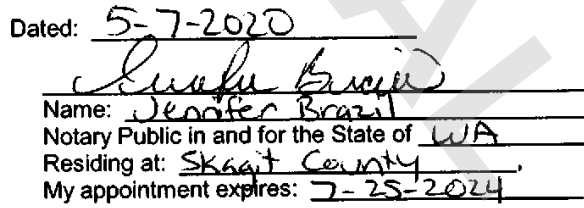 Dated: 5-7-2020
Jennifer Brazil
Name: Jennifer Brazil
Notary Public in and for the State of WA
Residing at: Skagit County.
My appointment expires: 7-25-2024